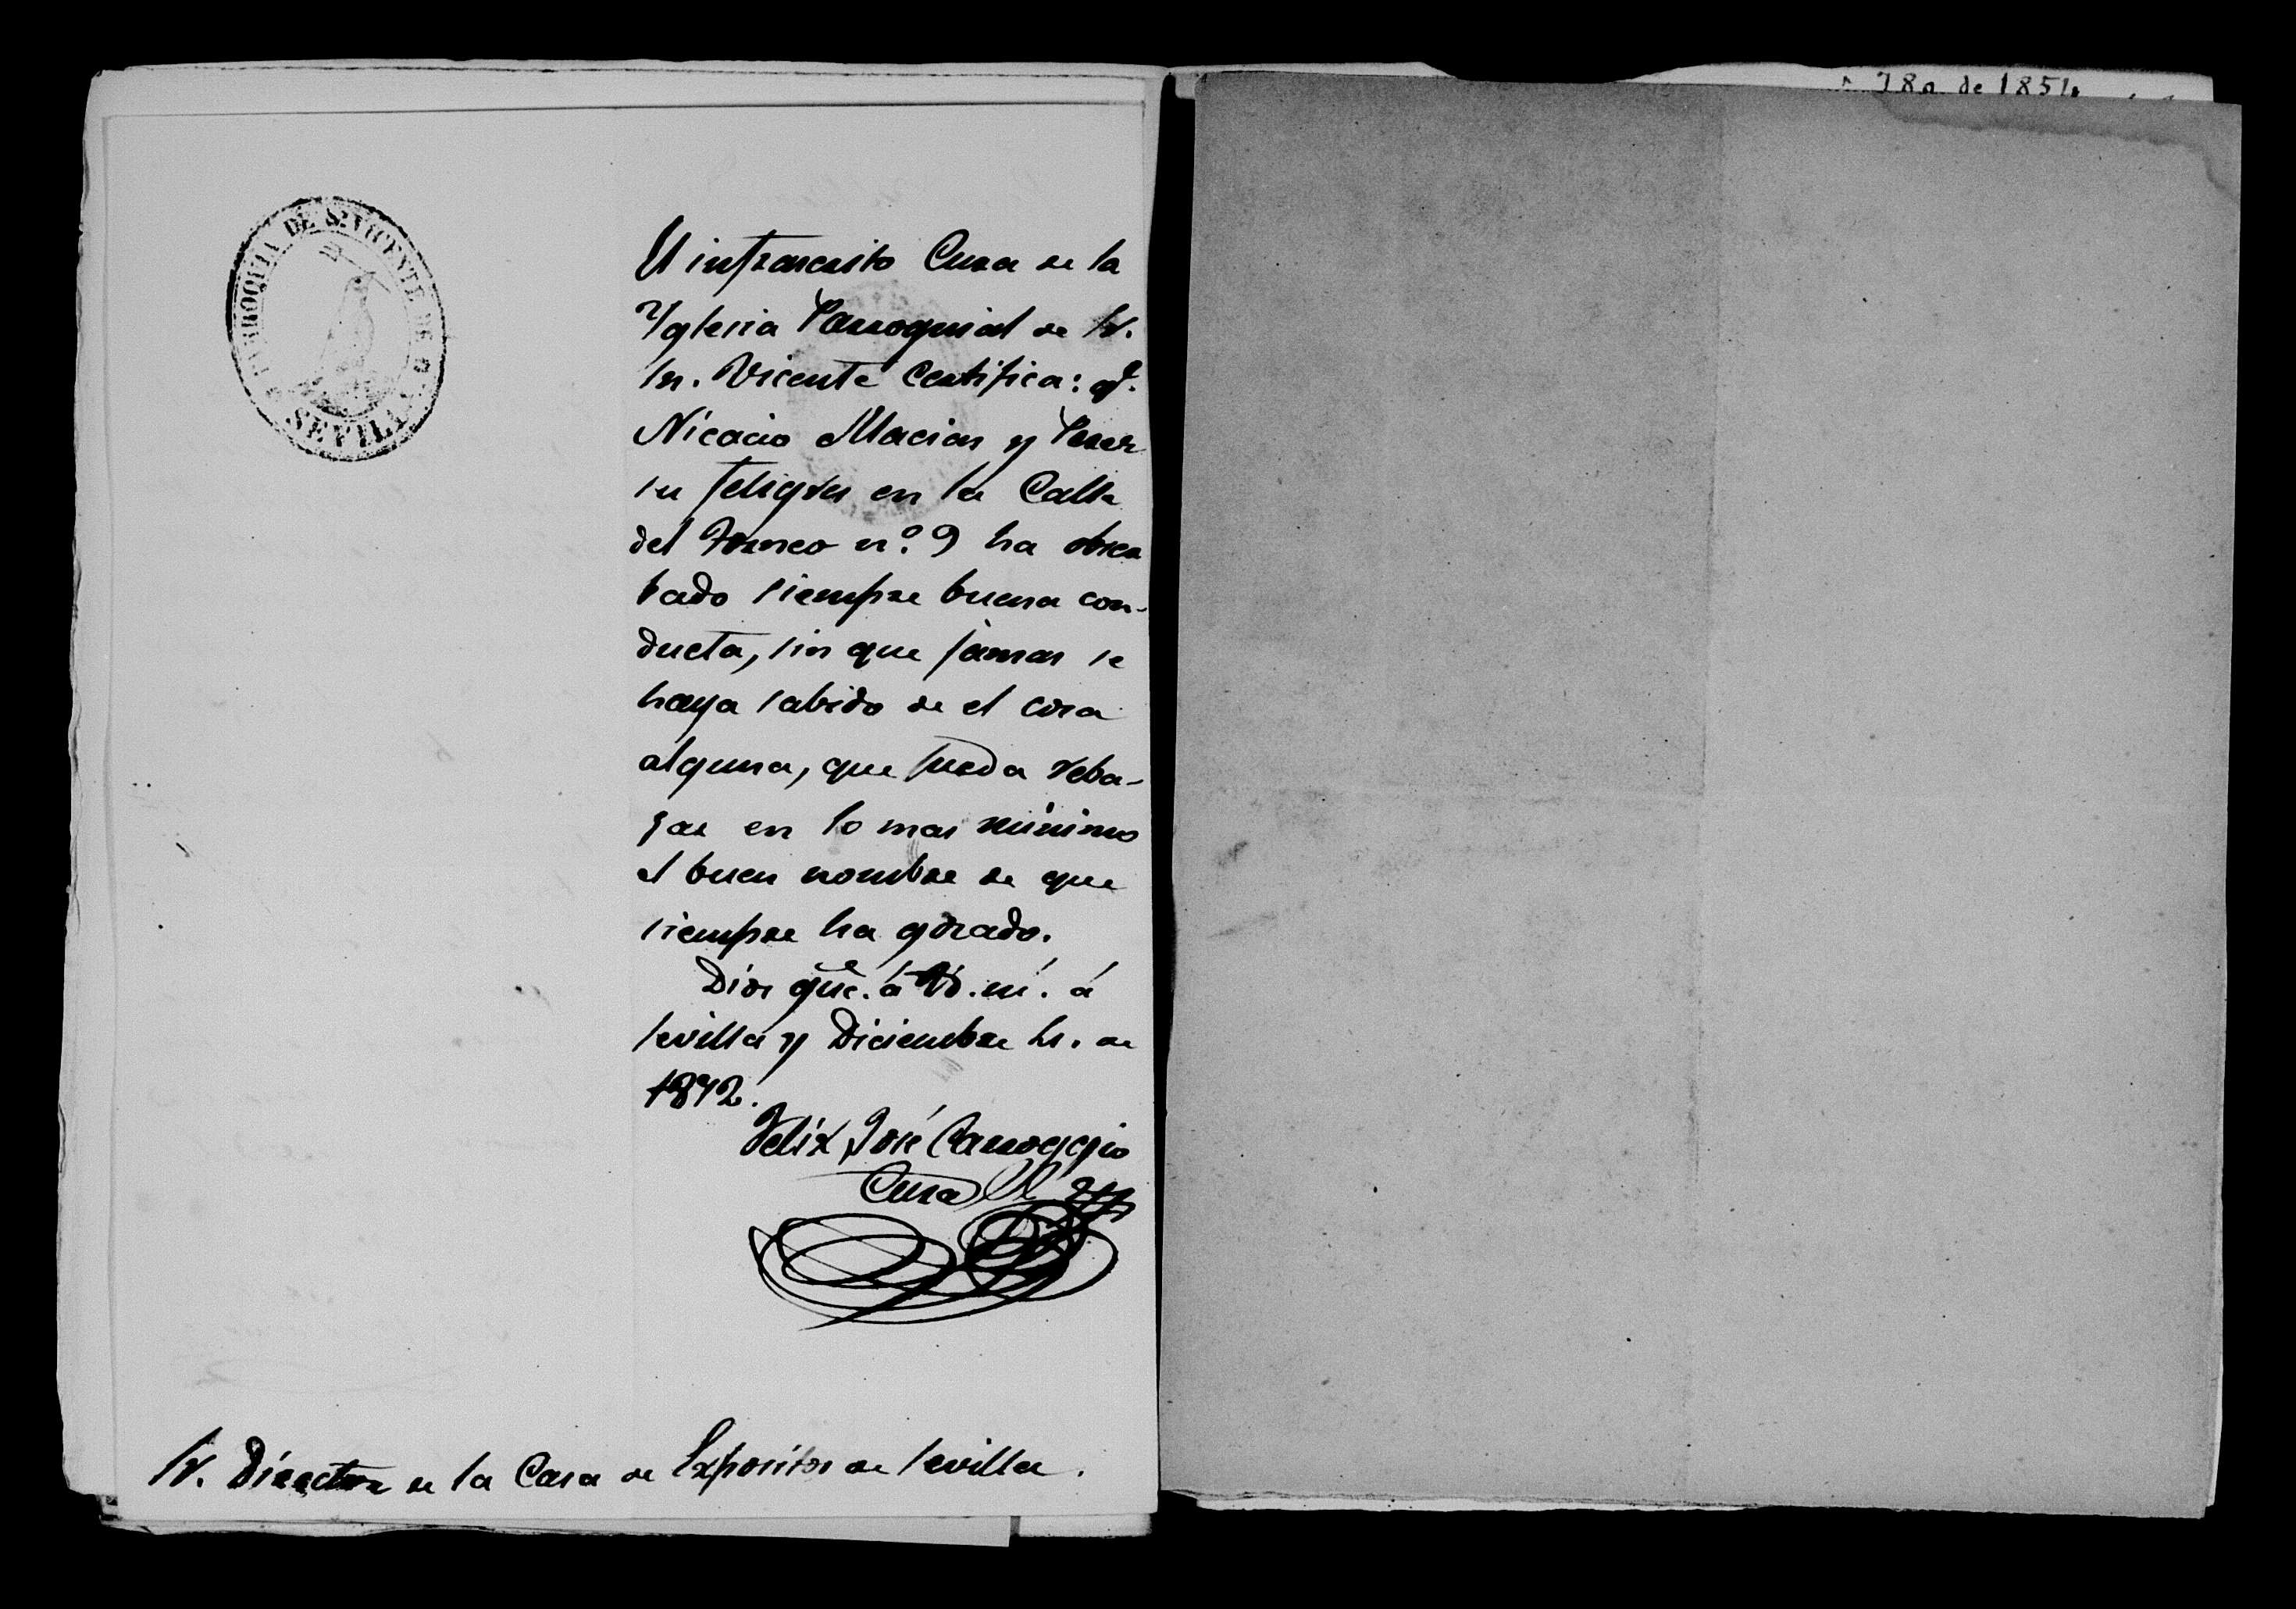 780 de 1854
PARROQUIA DE Sn. VICENTE DE
SEVILLA
El infrascrito Cura de la
Yglesia Parroquial de Sr.
Sn. Vicente Certifica: qe.
Nicacio Macias y Perez
su feligres en la Calle
del Torneo n.º 9 ha obser
bado siempre buena con-
ducta, sin que jamas se
haya sabido de el cosa
alguna, que pueda reba-
jar en lo mas minimo
el buen nombre de que
siempre ha gozado.
Dios gue. á Vd. m. á
Sevilla y Diciembre de
1872.
Felix José Carroggio
Cura
Sr. Director de la Casa de Expositos de Sevilla.